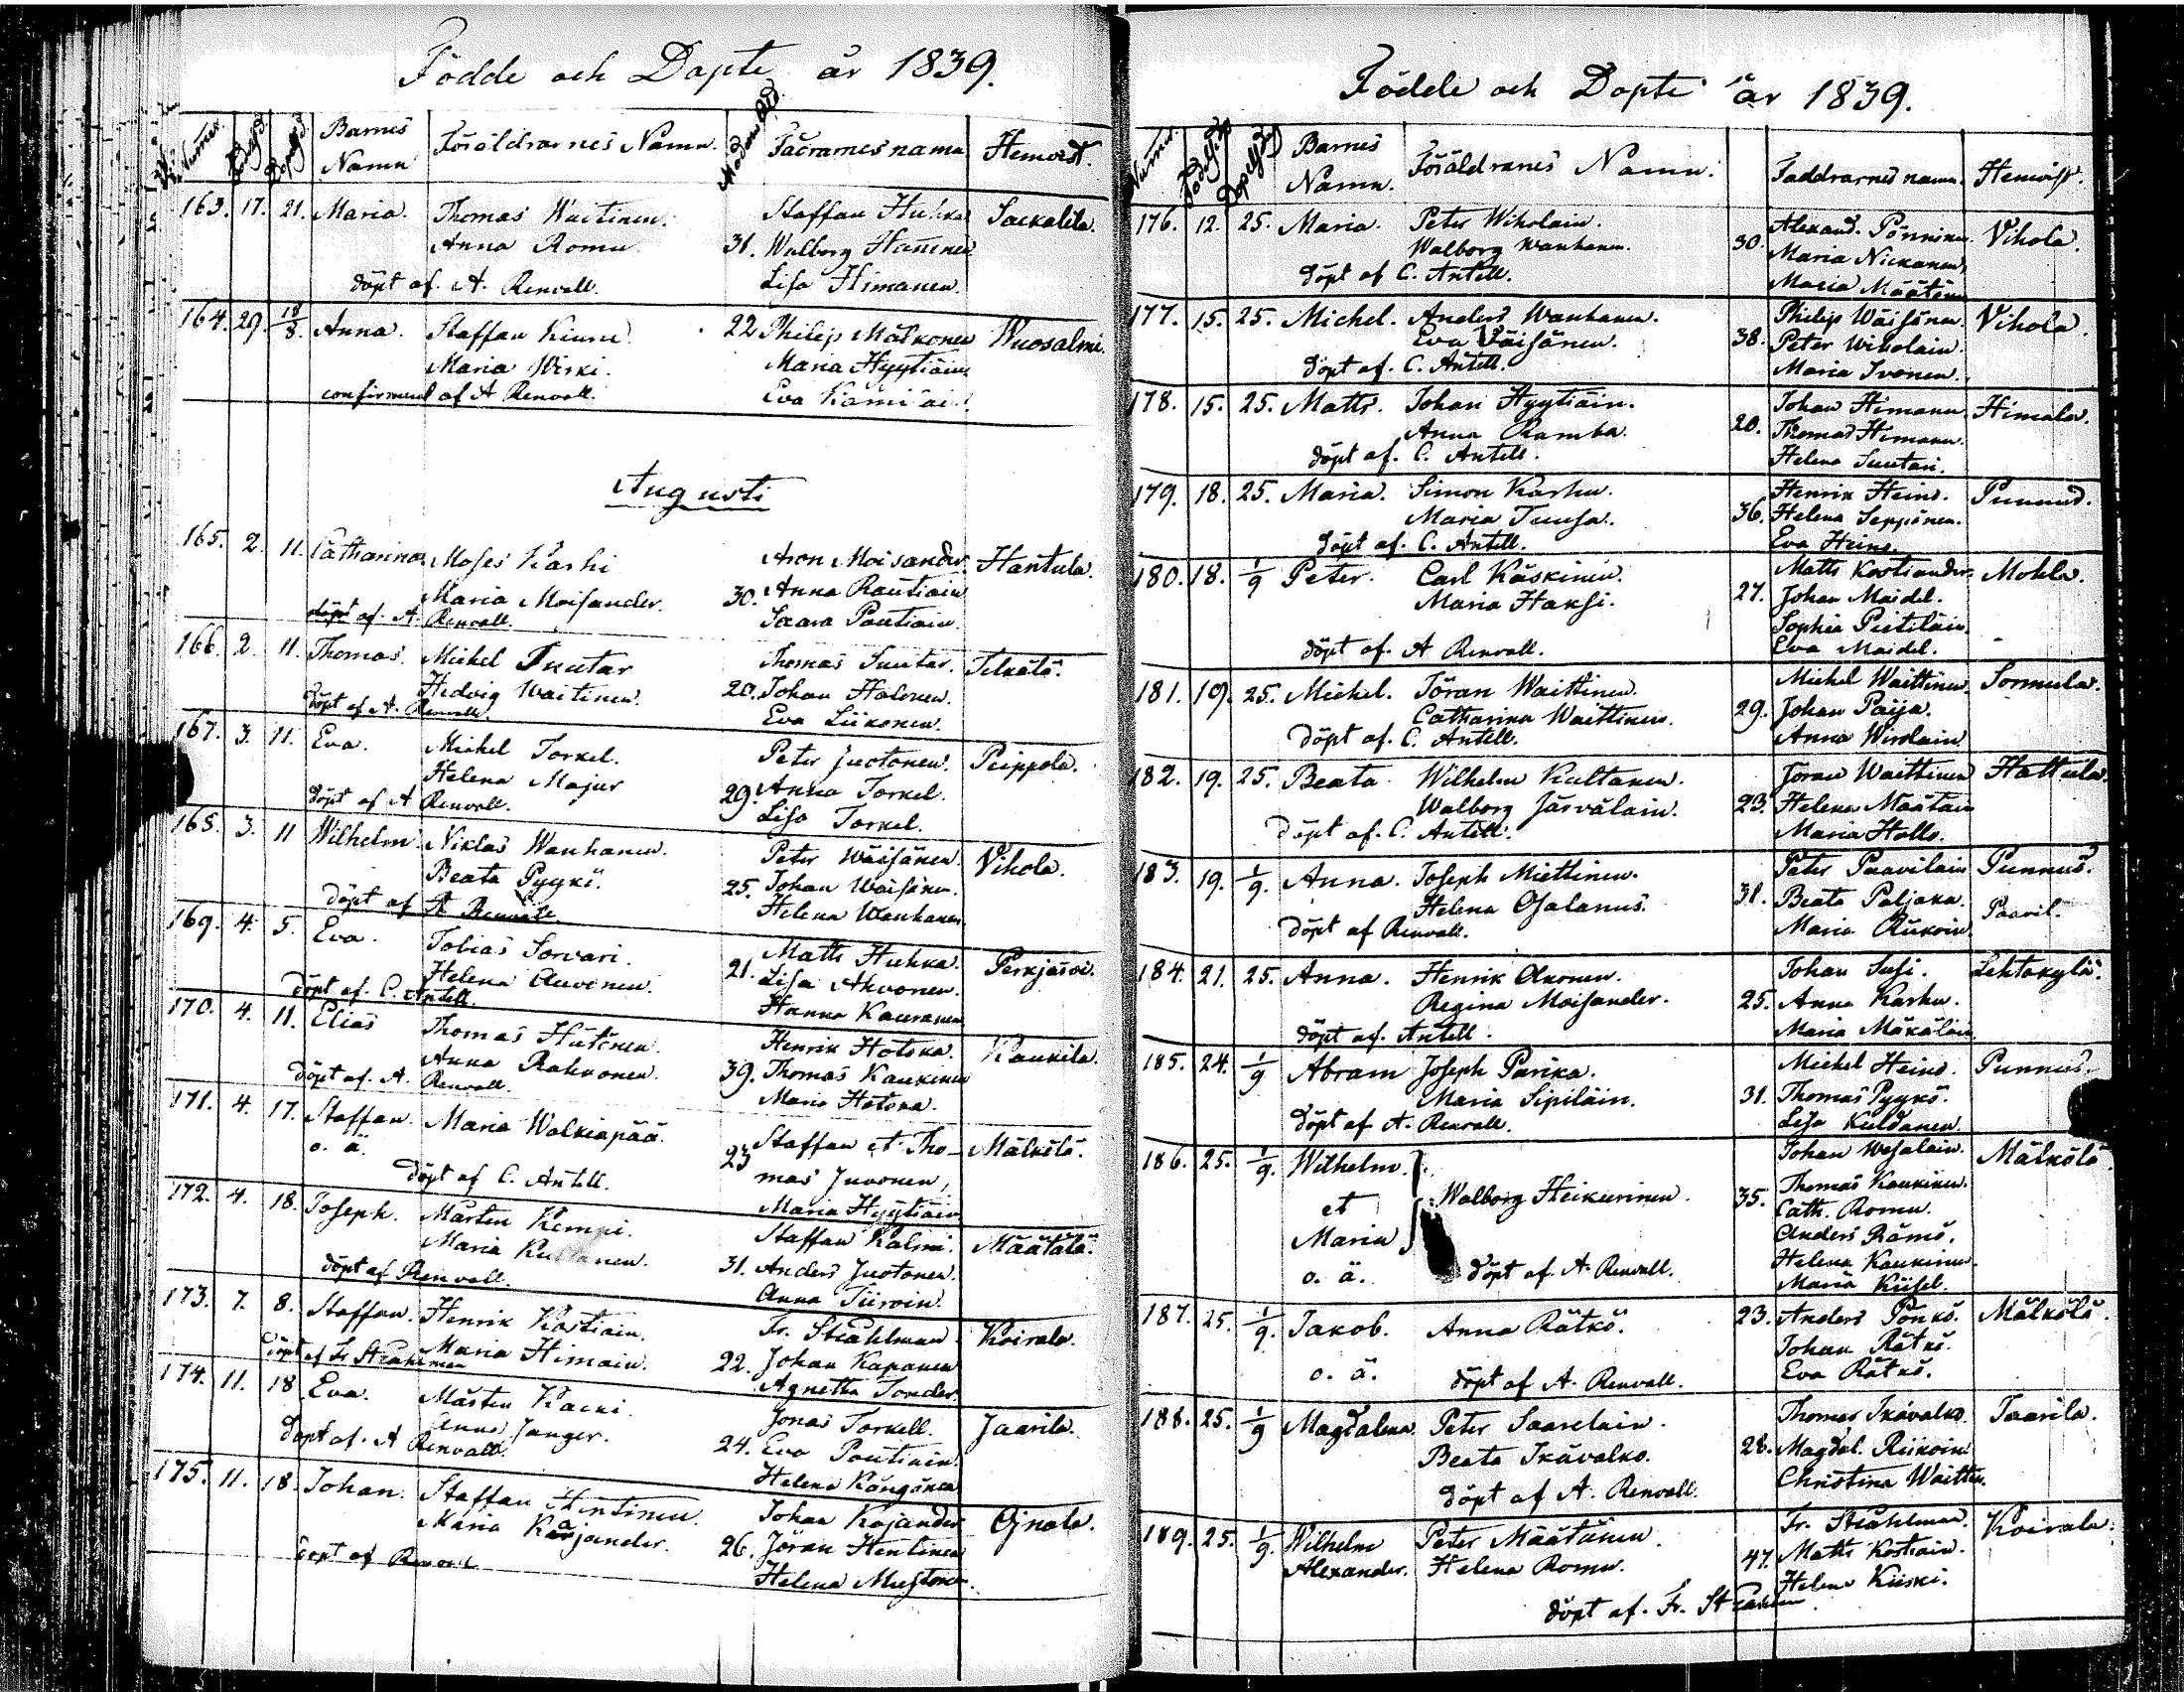 Födde och Döpte år 1839.
Nummer Födsd. Döpsd. Barnes Namn Föräldrarnes Namn. Modrens Åld. Fadrarnes namn Hemvist.
163. 17. 21. Maria. Thomas Waitinen. Staffan Huhka Sackalila.
Anna Romu 31. Walborg Hämmen
döpt af. A. Renvall. Lisa Himanen.
164. 29. 18/8. Anna. Staffan Kiuru 22 Philip Mälkonen Wuosalmi.
Maria Wirki. Maria Hyytiäin
confirmerad af A Renvall. Eva
Augusti
165. 2. 11. Catharina Moses Karhi Aron Moisander Hantula.
Maria Moisander. 30. Anna Rautiain
döpt af. A. Renvall. Saara Poutiain.
166. 2. 11. Thomas. Michel Suutar Thomas Suutar. Telkälä.
Hedvig Waitinen. 20. Johan Halonen.
döpt af A. Renvall. Eva Liikonen.
167. 3. 11. Eva. Michel Torkel. Peter Juotonen. Peippola.
Helena Majur 29. Anna Torkel.
döpt af A Renvall. Lisa Torkel.
168. 3. 11 Wilhelm. Niklas Wanhanen. Peter Wäisänen. Vihola.
Beata Pyykö. 25. Johan Wäisänen.
döpt af A Renvall. Helena Wanhanen
169. 4. 5. Eva. Tobias Sorvari. Matts Huhka. Perkjärvi.
Helena Auvonen. 21. Lisa Ahvonen.
döpt af. C. Antell. Hanna Kauranen
170. 4. 11. Elias Thomas Hütönen. Henrik Hotoka. Kaukila
Anna Rahvonen. 39. Thomas Kaukinen
döpt af. A. Renvall. Maria Hotoka.
171. 4. 17. Staffan. Maria Walkiapää. 23 Staffan et Tho- Mälkölä.
o. ä. mas Juvonen,
döpt af C. Antell. Maria Hyytiäin
172. 4. 18. Joseph. Mårten Kemppi. Staffan Kalmi. Määtälä.
Maria Kultanen. 31. Anders Juotonen.
döpt af Renvall. Anna Tiiroin.
173. 7. 8. Staffan. Henrik Kostiain. Fr. Stråhlman Koirala.
Maria Himain. 22. Johan Kapanen
döpt af Fr Stråhlman Agnetha Tonder.
174. 11. 18 Eva. Mårten Kacki. Jonas Torkell. Jaarila.
Anna Janger. 24. Eva Poutiain.
döpt af. A Renvall. Helena Kängänen
175. 11. 18. Johan. Staffan Hintinen. Johan Kajander Ojnala.
Maria Kajander. 26. Jöran Hentinen
döpt af Renvall Helena Mustonen.
Födde och Döpte år 1839.
Nummer Födelsedag Döpelsedag Barnes Namn. Föräldrarnes Namn. Faddrarnes namn. Hemvist.
176. 12. 25. Maria. Peter Wiholain. Alexand. Pönninen. Vihola.
Walborg Wanhanen. 30. Maria Nickanen,
döpt af C. Antell. Maria Määtänen
177. 15. 25. Michel. Anders Wanhanen. Philip Wäisänen. Vihola.
Eva Wäisänen. 38. Peter Wiholain.
döpt af. C. Antell. Maria Ivonen.
178. 15. 25. Matts. Johan Hyytiäin. Johan Himanen. Himala.
Anna Ramba. 20. Thomas Himanen.
döpt af. C. Antell. Helena Suutari.
179. 18. 25. Maria. Simon Karhu. Henrik Heino. Punnus.
Maria Tuusa. 36. Helena Seppänen.
döpt af. C. Antell. Eva Heino.
180. 18. 1/9 Peter. Carl Käskinen. Matts Kostiander. Mohla.
Maria Haksi. 27. Johan Maidel.
Sophia Pietiläin.
döpt af. A Renvall. Eva Maidel.
181. 19. 25. Michel. Jöran Waittinen. Michel Waittinen. Sormula.
Catharina Waittinen. 29. Johan Paija.
döpt af. C. Antell. Anna Wirolain.
182. 19. 25. Beata. Wilhelm Kultanen. Jöran Waittinen Hattula.
Walborg Järväläin. 23. Helena Määtäin
döpt af. C. Antell. Maria Hallo.
183. 19. 1/9. Anna. Joseph Miettinen. Peter Paavilain Punnus.
Helena Osalanus. 31. Beata Paljaka. Paavil.
döpt af Renvall. Maria Riikoin.
184. 21. 25. Anna. Henrik Akonen. Johan Susi. Lehtokylä.
Regina Moisander. 25. Anna Karhu.
döpt af. Antell. Maria Mäkäläin.
185. 24. 1/9 Abram Joseph Parika. Michel Heino. Punnus.
Maria Sipiläin. 31. Thomas Pyykö.
döpt af A. Renvall. Lisa Kuldanen.
186. 25. 1/9. Wilhelm Johan Wesalain. Mälkölä
et Walborg Heikurinen. 35. Thomas Kaukinen.
Maria Cath. Romu.
Anders Rämö.
o. ä. döpt af. A. Renvall. Helena Kaukinen.
Maria Kiisel.
187. 25. 1/9. Jakob. Anna Rätkö. 23. Anders Pönkö. Mälkölä.
Johan Rätkö.
o. ä. döpt af A. Renvall. Eva Rätkö.
188. 25. 1/9 Magdalena Peter Saarelain. Thomas Ikävalko. Jaarila.
Beata Ikävalko. 28. Magdal. Riikoin.
döpt af A. Renvall. Christina Waittin.
189. 25. 1/9. Wilhelm Peter Määtänen. Fr. Stråhlman. Koirala.
Alexander. Helena Romu. 47. Matts Kostiain.
Helena Kiiski.
döpt af. Fr. Stråhlman.